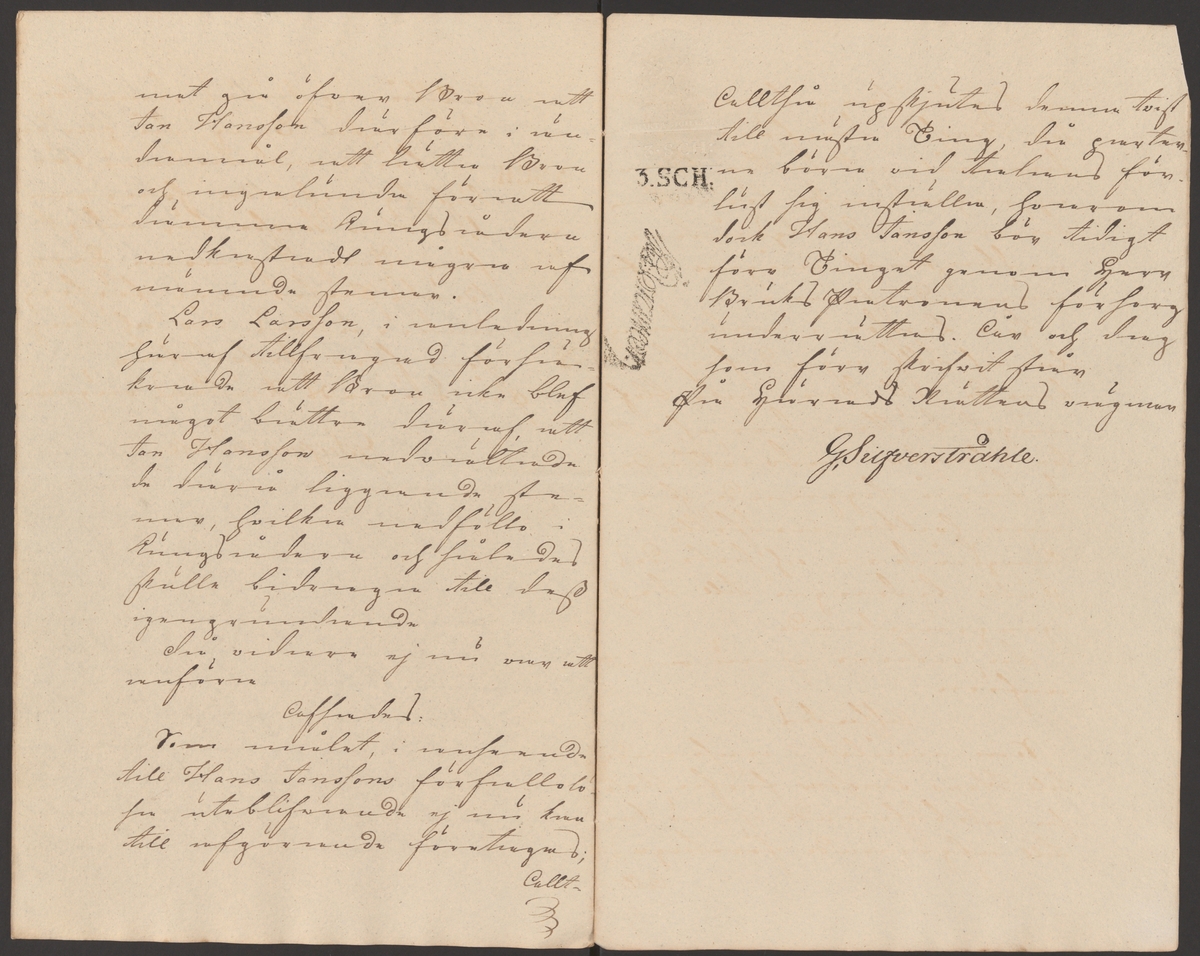 mat gå öfver Bron att
Jan Hansson därföre i än-
damål, att lätta Bron
och ingalunda för att
dämma Kungsådern
nedkastadt några af
nämnde stenar.
Lars Larsson, i anledning
häraf tillfrågad försä-
krade att Bron icke blef
något bättre däraf, att
Jan Hansson nedvältrade
de därå liggande ste-
nar, hvilka nedföllo i
Kungsådern och således
skulle bidraga till dess
igengrundande
Då vidare ej nu var att
anföra
Afsades:
Som målet, i anseende
till Hans Janssons förfallolö-
sa uteblifvande ej nu kan
till afgörande företagas;
Allt-
Alltså upskjutes denna tvist
till nästa Ting, då parter-
3.SCH: ne böra vid talans för-
lust sig inställa, hvarom
dock Hans Jansson bör tidigt
före Tinget genom Herr
Bruks Patronens försorg
underrättas. År och dag
som förr skrifvit står
På Härads Rättens vägnar
G. Silfverstråhle.